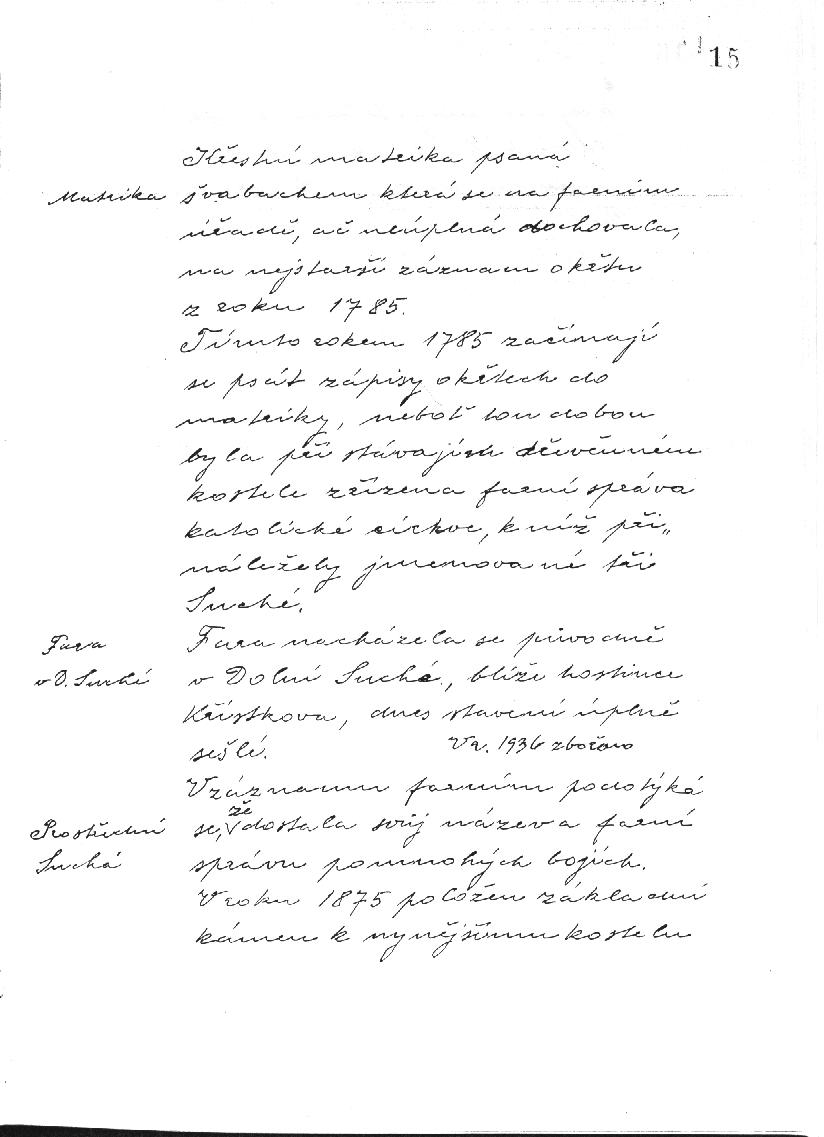 15
Křestní matrika psaná
Matrika
švabachem která se na farním
úřadě, ač neúplná dochovala,
na nejstarší záznam o křtu
z roku 1785.
Tímto rokem 1785 začínají
se psát zápisy o křtech do
matriky, neboť tou dobou
byla při stávajícím dřevěnném
kostele zřízena farní správa
katolické církve, k níž při„
náležely jmenované tři
Suché.
Fara
v D. Suché
Fara nacházela se původně
v Dolní Suché, blíže hostince
Křístkova, dnes stavení úplně
sešlé. V r. 1936 zbořeno
V záznamu farním podotýká
Prostřední
Suchá
se, že dostala svůj název a farní
správu po mnohých bojích.
V roku 1875 položen základní
kámen k nynějšímu kostelu